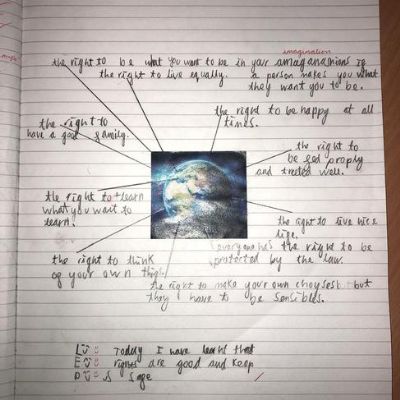 imagination
the right to be what you want to be in your amaganashions if
the right to live equally. a person makes you what
they want you to be.
the right to be happy at all
times.
the right to
have a good family.
the right to
be fed proply
and treeted well.
the right to learn
what you want to
learn.
the right to live nice
life.
everyone has the right to be
protected by the law.
the right to think
of your own thigs.
the right to make your own choyses but
they have to be sensibles.
L Today I have learnt that
E rights are good and keep
D s safe